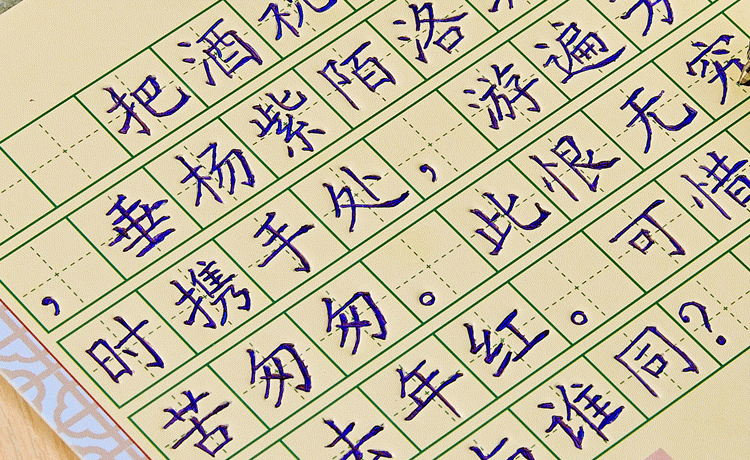 把酒祝
,垂杨紫陌洛
时携手处,游遍
苦匆匆。此恨无穷
去年红。可惜
谁同?